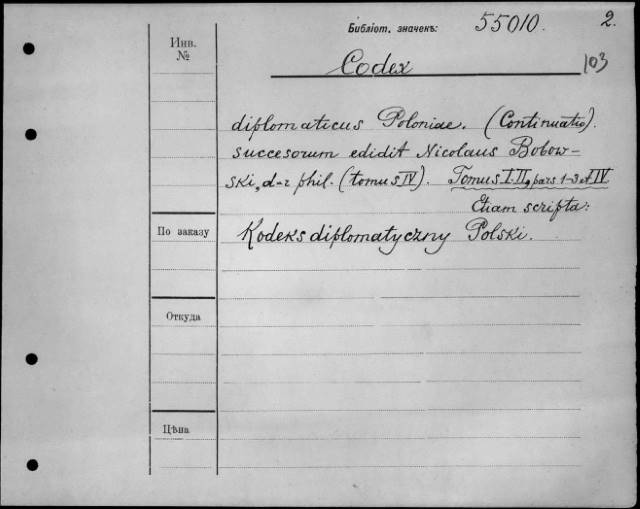 Библіот. значекъ: 55010. 2.
Инв. №
Codex 103
diplomaticus Poloniae. (Continuatio).
succesorum edidit Nicolaus Bobow-
ski, d-r phil. (tomus IV). Tomus I-II, pars 1-3 et IV
Etiam scripta:
По заказу
Kodeks diplomatyczny Polski.
Откуда
Цѣна